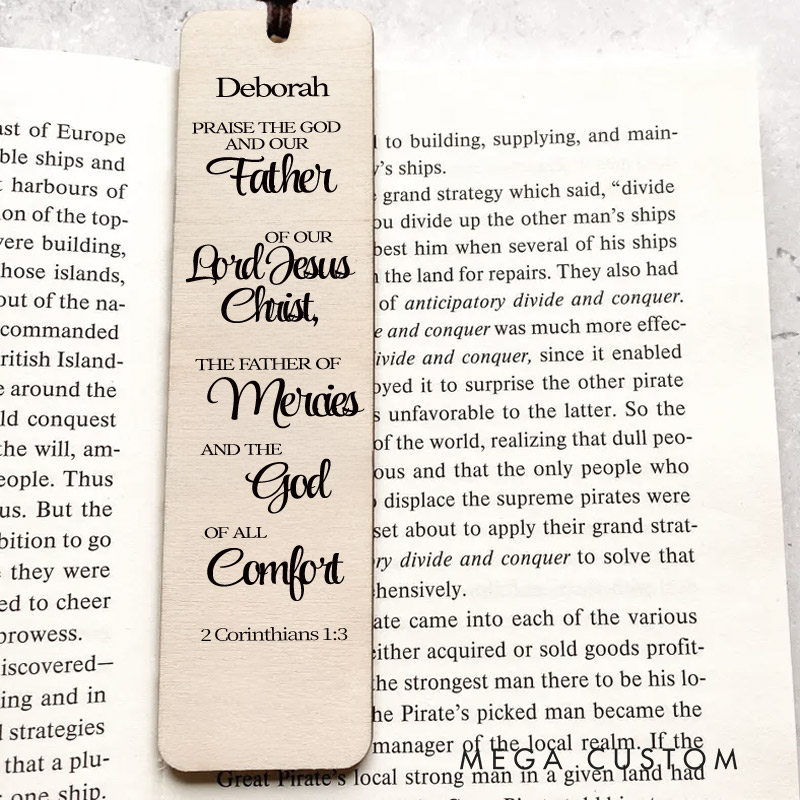 Deborah
PRAISE THE GOD
AND OUR
Father
OF OUR
Lord Jesus
Christ,
THE FATHER OF
Mercies
AND THE
God
OF ALL
Comfort
2 Corinthians 1:3
of Europe
ble ships and
harbours of
on of the top-
vere building,
hose islands,
out of the na-
commanded
ritish Island-
around the
ld conquest
the will, am-
eople. Thus
us. But the
bition to go
they were
ed to cheer
prowess.
iscovered—
ing and in
strategies
that a plu-
one ship.
to building, supplying, and main-
y's ships.
grand strategy which said, “divide
ou divide up the other man's ships
best him when several of his ships
the land for repairs. They also had
of anticipatory divide and conquer.
e and conquer was much more effec-
ivide and conquer, since it enabled
oyed it to surprise the other pirate
s unfavorable to the latter. So the
of the world, realizing that dull peo-
ous and that the only people who
displace the supreme pirates were
set about to apply their grand strat-
ry divide and conquer to solve that
hensively.
ate came into each of the various
either acquired or sold goods profit-
the strongest man there to be his lo-
he Pirate's picked man became the
manager of the local realm. If the
Great Pirate's local strong man in a given land had
MEGA CUSTOM